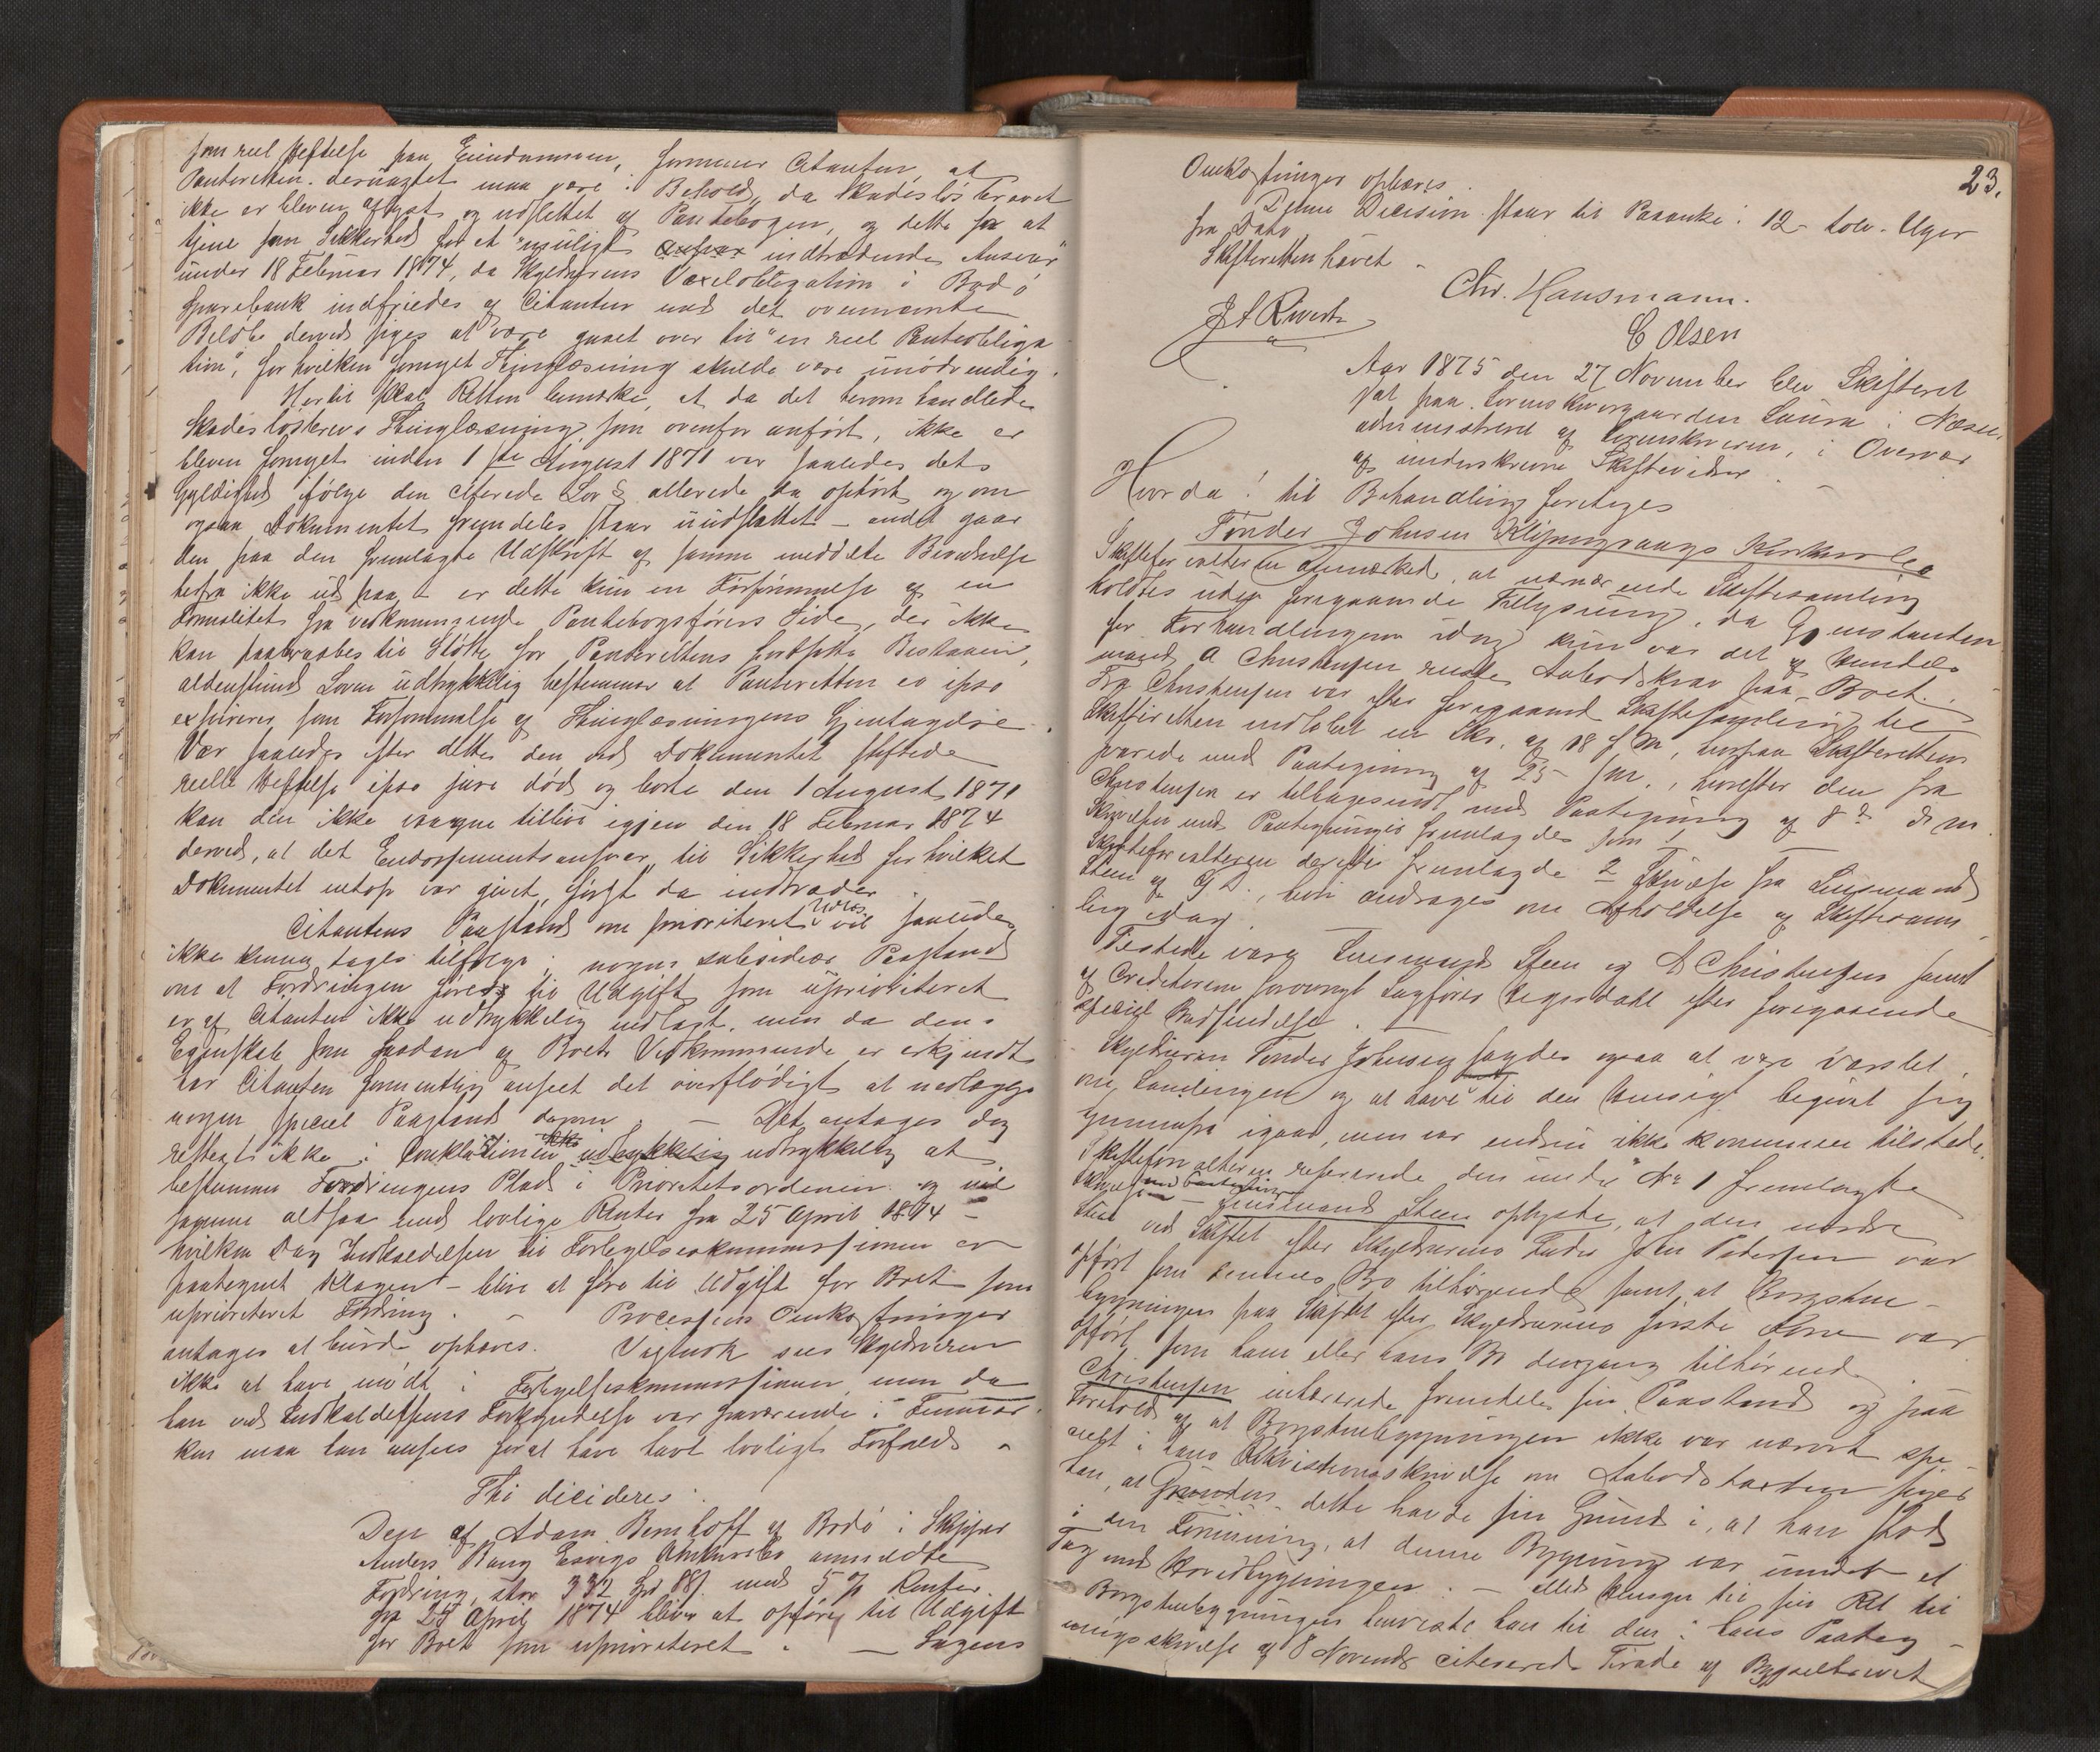 som reel Heftelse paa Eiendommen, formener Citanten, at
Panteretten desuagtet maa være i Behold, da Skadesløsbrevet
ikke er bleven aflyst og udslettet af Pantebogen, og dette for at
tjene som Sikkerhed for et "muligt indtrædende Ansvar"
under 18 Februar 1874, da Skyldnerens Vexelobligation i Bodø
Sparebank indfriedes af Citanten med det ovennævnte
Beløb derved siges at være gaaet over til "en reel Panteobliga
tion", for hvilken fornyet Thinglæsning skulde være unødvendig.
Hertil skal Retten bemærke, at da det herom handlede
Skadesløsbrevs Thinglæsning, som ovenfor anført, ikke er
bleven fornyet inden 1ste August 1871 var saaledes dets
Gyldighed ifølge den citerede Lov § allerede da ophørt og om
ogsaa Dokumentet fremdeles staar uudslettet – andet gaar
den paa den fremlagte Udskrift af samme meddelte Bevidnelse
herfra ikke ud paa – er dette kun en Forsømmelse af en
Formalitet fra vedkommende Pantebogsførers Side, der ikke
kan paaberaabes til Støtte for Panterettens fortsatte Bestaaen,
aldenstund Loven udtrykkelig bestemmer at Panteretten eo ipso
exspirerer, som Forsømmelse af Thinglæsningens Gjentagelse.
Var saaledes efter dette den ved Dokumentet stiftede
reelle Heftelse ipso jure død og borte den 1 August 1871
kan den ikke vaagne tillive igjen den 18 Februar 1874
derved, at det Endossementsansvar, til Sikkerhed for hvilket
Dokumentet netop var givet, først da indtræder.
Citantens Paastand om prioriteret Udlæg vil saaledes
ikke kunne tages tilfølge; nogen subsidiær Paastand
om at Fordringen føres til Udgift som uprioriteret
er af Citanten ikke udtrykkelig nedlagt, men da dens
Egenskab som saadan af Boets Vedkommende er erkjendt
har Citanten formentlig anseet det overflødigt at nedlægge
nogen speciel Paastand derom. – Det antages dog
rettest ikke i Conklusionen udtrykkelig at
bestemme Fordringens Plads i Prioritetsordenen og vil
samme altsaa med lovlige Renter fra 25 April 1874 –
hvilken Dag Indkaldelsen til Forligelseskommissionen er
paategnet Klagen – blive at føre til Udgift for Boet som
uprioriteret Fordring. – Processens Omkostninger
antages at burde ophæves. Vistnok sees Skyldneren
ikke at have mødt i Forligelseskommissionen, men da
han ved Indkaldelsens Forkyndelse var fraværende i Finmar
ken maa han ansees for at have havt lovligt Forfald.
Thi decideres:
Den af Adam Bernhoff af Bodø i Skipper
Anders Bang Esvigs anmeldte
Fordring, stor 332 Spd 88 s. med 5 % Renter
fra 25 April 1874 bliver at opføre til Udgift
for Boet som uprioriteret. – Sagens
23.
Omkostninger ophæves.
Denne Decision staar til Paaanke i 12 – tolv – Uger
fra Dato.
Skifteretten hævet –
Chr. Hansmann.
C Olsen
Aar 1875 den 27 November blev Skifteret
sat paa Sorenskrivergaarden i Næsne
administreret af Sorenskriveren, i Overvær
af underskrevne Skiftevidner. –
Hvorda! til Behandling foretoges
Tønder Johnsen Konkursbo
Skifteforvalteren bemærkede, at nærværende Skiftesamling
holdtes uden foregaaende Tillysning, da Gjenstanden
for Forhandlingerne idag kun var det af Handels
mand A Christensen reiste Aabodskrav paa Boet.
Fra Christensen var efter foregaaende Skiftesamling til
Skifteretten indløbet en Skr. af 18 f. M., hvorpaa Skifteretten
svarede med Paategning af 25 s. M., hvorefter den fra
Christensen er tilbagesendt med Paategning af 8de d. M.
Skrivelsen med Paategninger fremlagdes som 1
Skifteforvalteren derefter fremlagde 2 Skrivelse fra Lensmand
Steen af G. D., hvori andrages om Afholdelse af Skiftesam
ling idag.
Tilstede vare Lensmand Steen og A Christensen samt
af Creditorerne forøvrigt Sagfører efter foregaaende
speciel Budsendelse. –
Skyldneren Tønder Johnsen sagdes ogsaa at være varslet
om Samlingen og at have til den Hensigt begivet sig
hjemmefra igaar, men var endnu ikke kommen tilstede.
Skifteforvalteren refererede den under No 1 fremlagte
Skrivelse med Paategning. – Lensmand Steen oplyste, at den nordre
Stue ved Skiftet efter Skyldnerens Fader John Pedersen var
opført som dennes Bo tilhørende, samt at Borgstue-
bygningen paa Skiftet efter Skyldnerens første Kone var
opført som ham eller hans Bo dengang tilhørende.
Christensen inhærerede fremdeles sin Paastand og paa
Forehold af at Borgstuebygningen ikke var nævnt spe-
cielt i hans Rekvisitionsskrivelse om Aabodstaxten siger
han, at dette havde sin Grund i, at han stod
i den Formening, at denne Bygning var under et
Tag med Hovedbygningen. – Med Hensyn til sin Ret til
Borgstuebygningen henviste han til den i hans Paateg-
ningsskrivelse af 8 Novembr citerede Tirade af Bygselbrevet